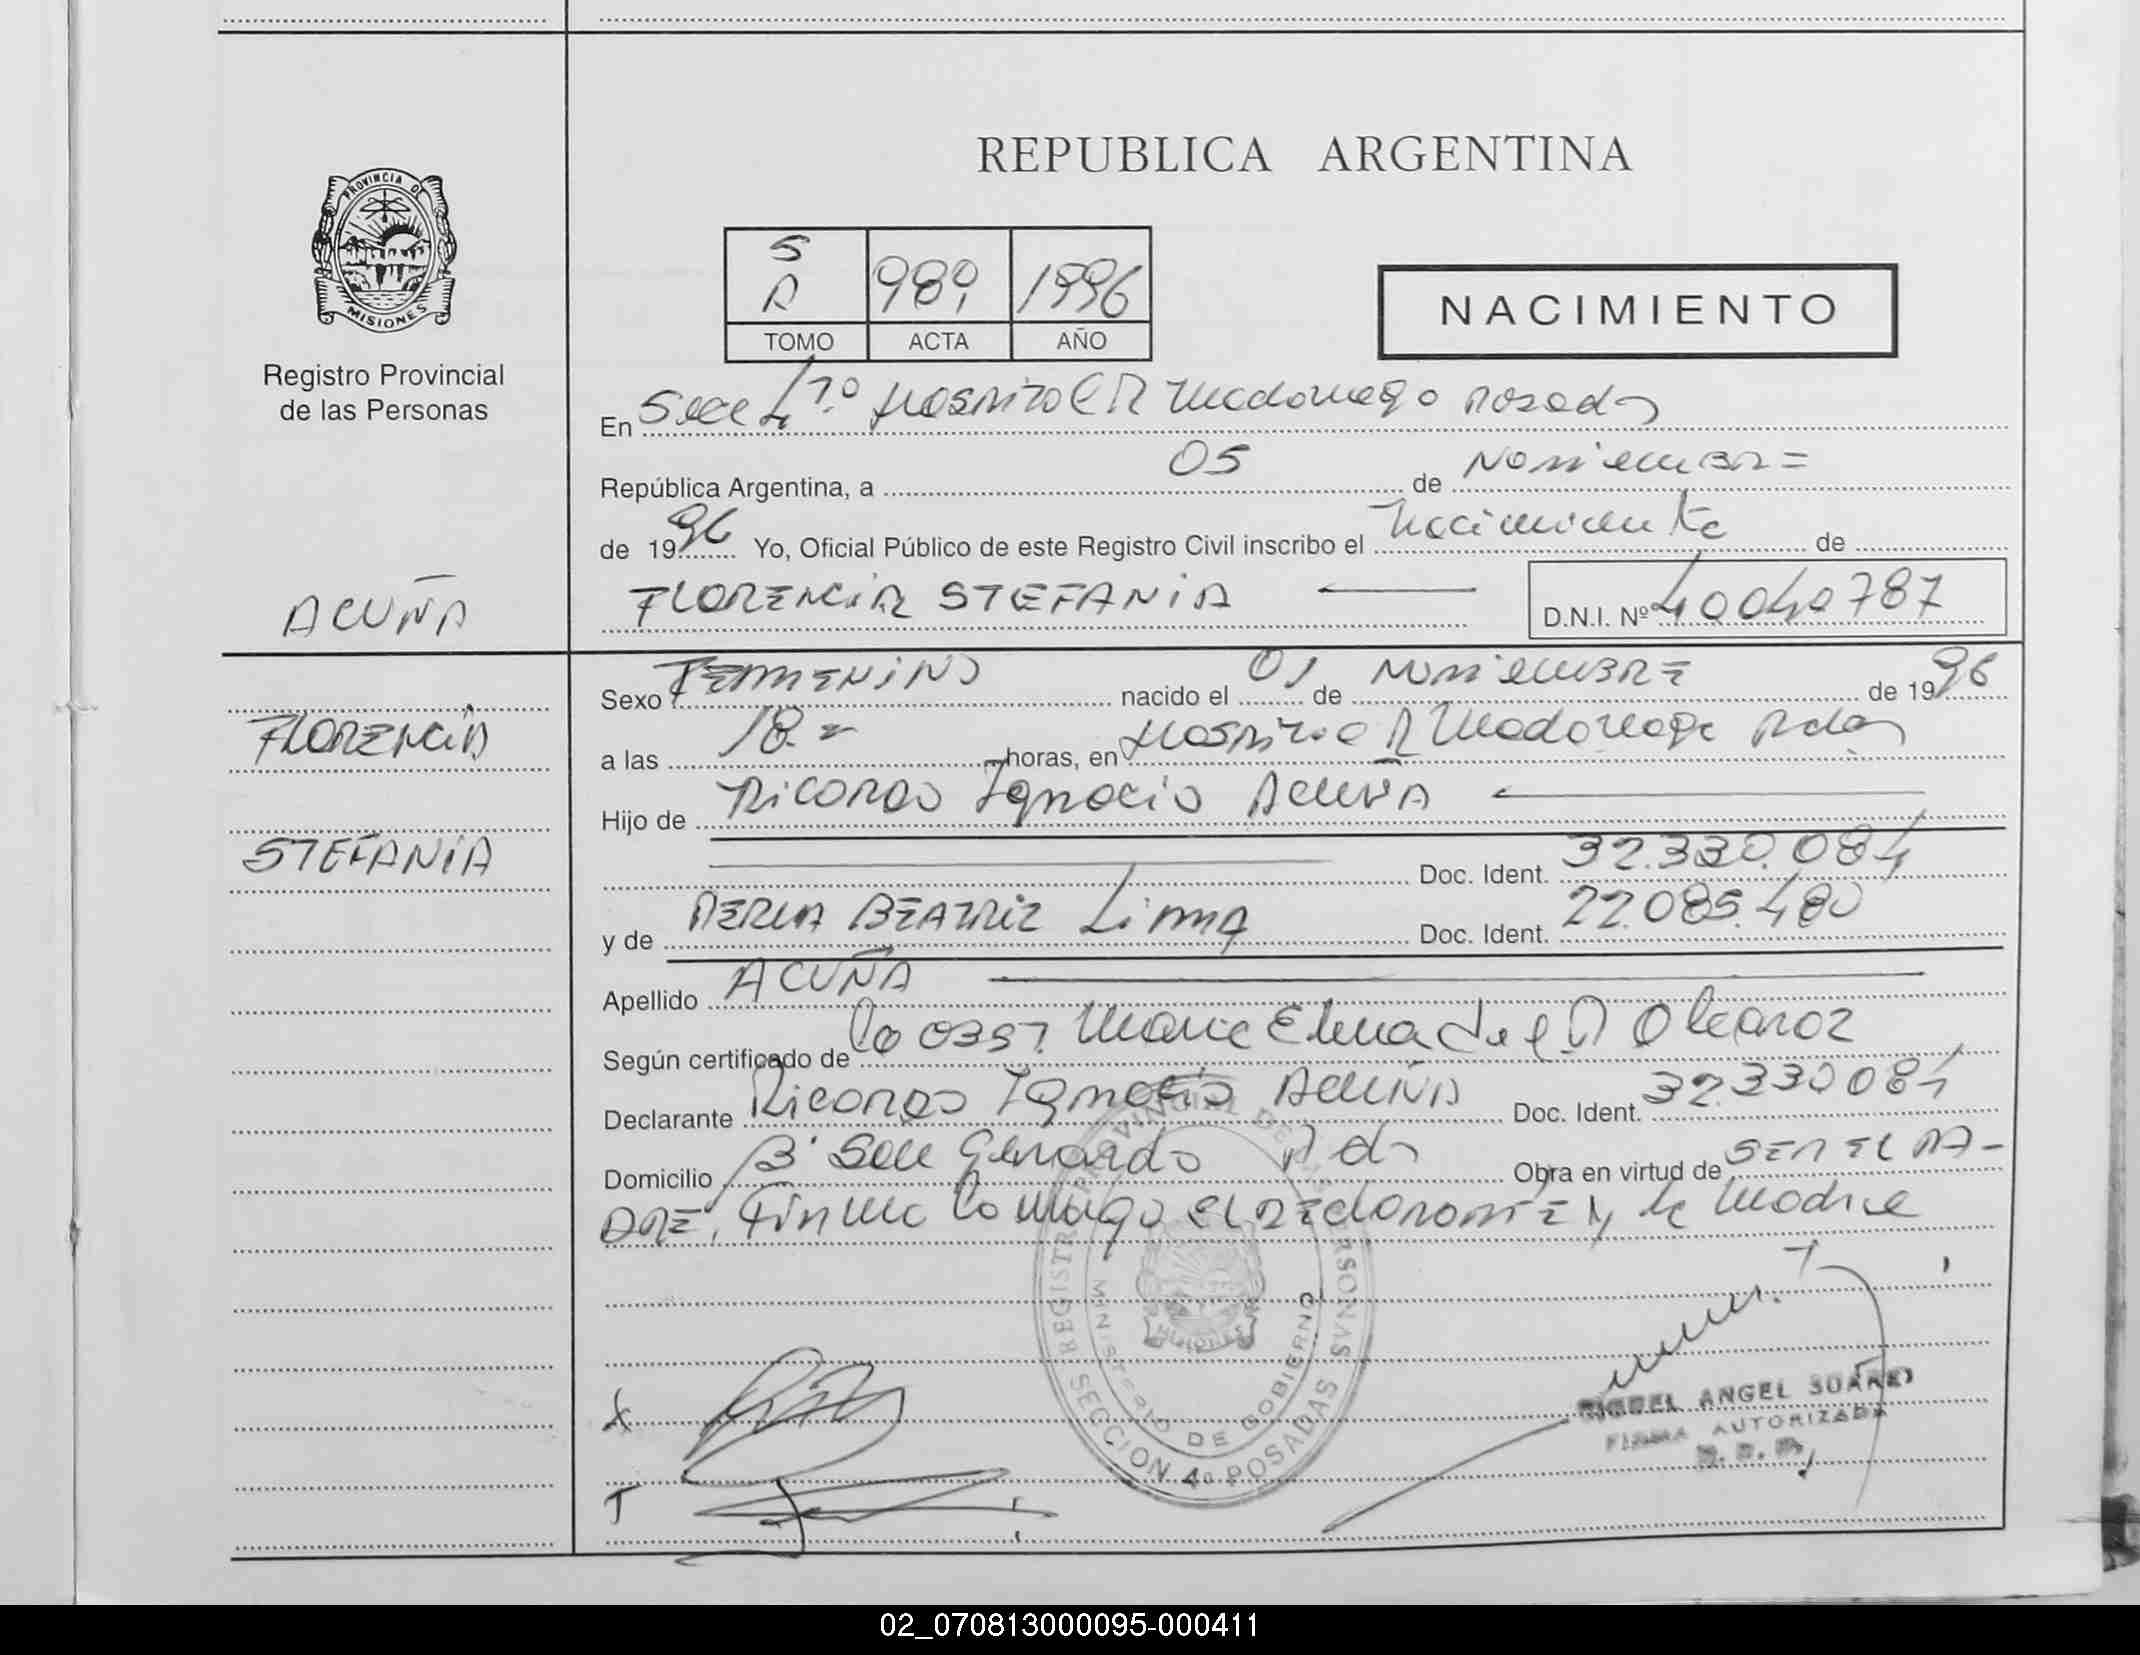 REPUBLICA ARGENTINA
PROVINCIA DE
MISIONES
Registro Provincial
de las Personas
5
A 989 1996
TOMO ACTA AÑO
NACIMIENTO
En Secc 4ª Hospital R Madariaga Posadas
República Argentina, a 05 de Noviembre
de 1996 Yo, Oficial Público de este Registro Civil inscribo el Nacimiento de
ACUÑA
FLORENCIA STEFANIA
D.N.I. Nº 40040787
FLORENCIA
STEFANIA
Sexo FEMENINO nacido el 01 de Noviembre de 1996
a las 18 horas, en Hospital R Madariaga Pdas
Hijo de Ricardo Ignacio Acuña
Doc. Ident. 32.330.084
y de PERLA BEATRIZ Lima Doc. Ident. 22.085.480
Apellido ACUÑA
Según certificado de Maria Elena del Olearoz
Declarante Ricardo Ignacio ACUÑA Doc. Ident. 32.330084
Domicilio Bº San Gerardo Pdas Obra en virtud de SER EL PA-
DRE, Firma conmigo el declarante y la Madre
REGISTRO PROVINCIAL DE LAS PERSONAS
MINISTERIO DE GOBIERNO
MISIONES
SECCION 4º POSADAS
X
T
MIGUEL ANGEL SUAREZ
FIRMA AUTORIZADA
02_070813000095-000411